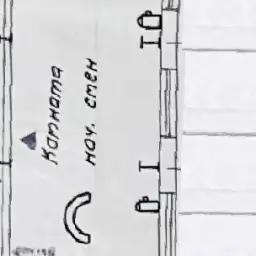 Комната
нач. смен